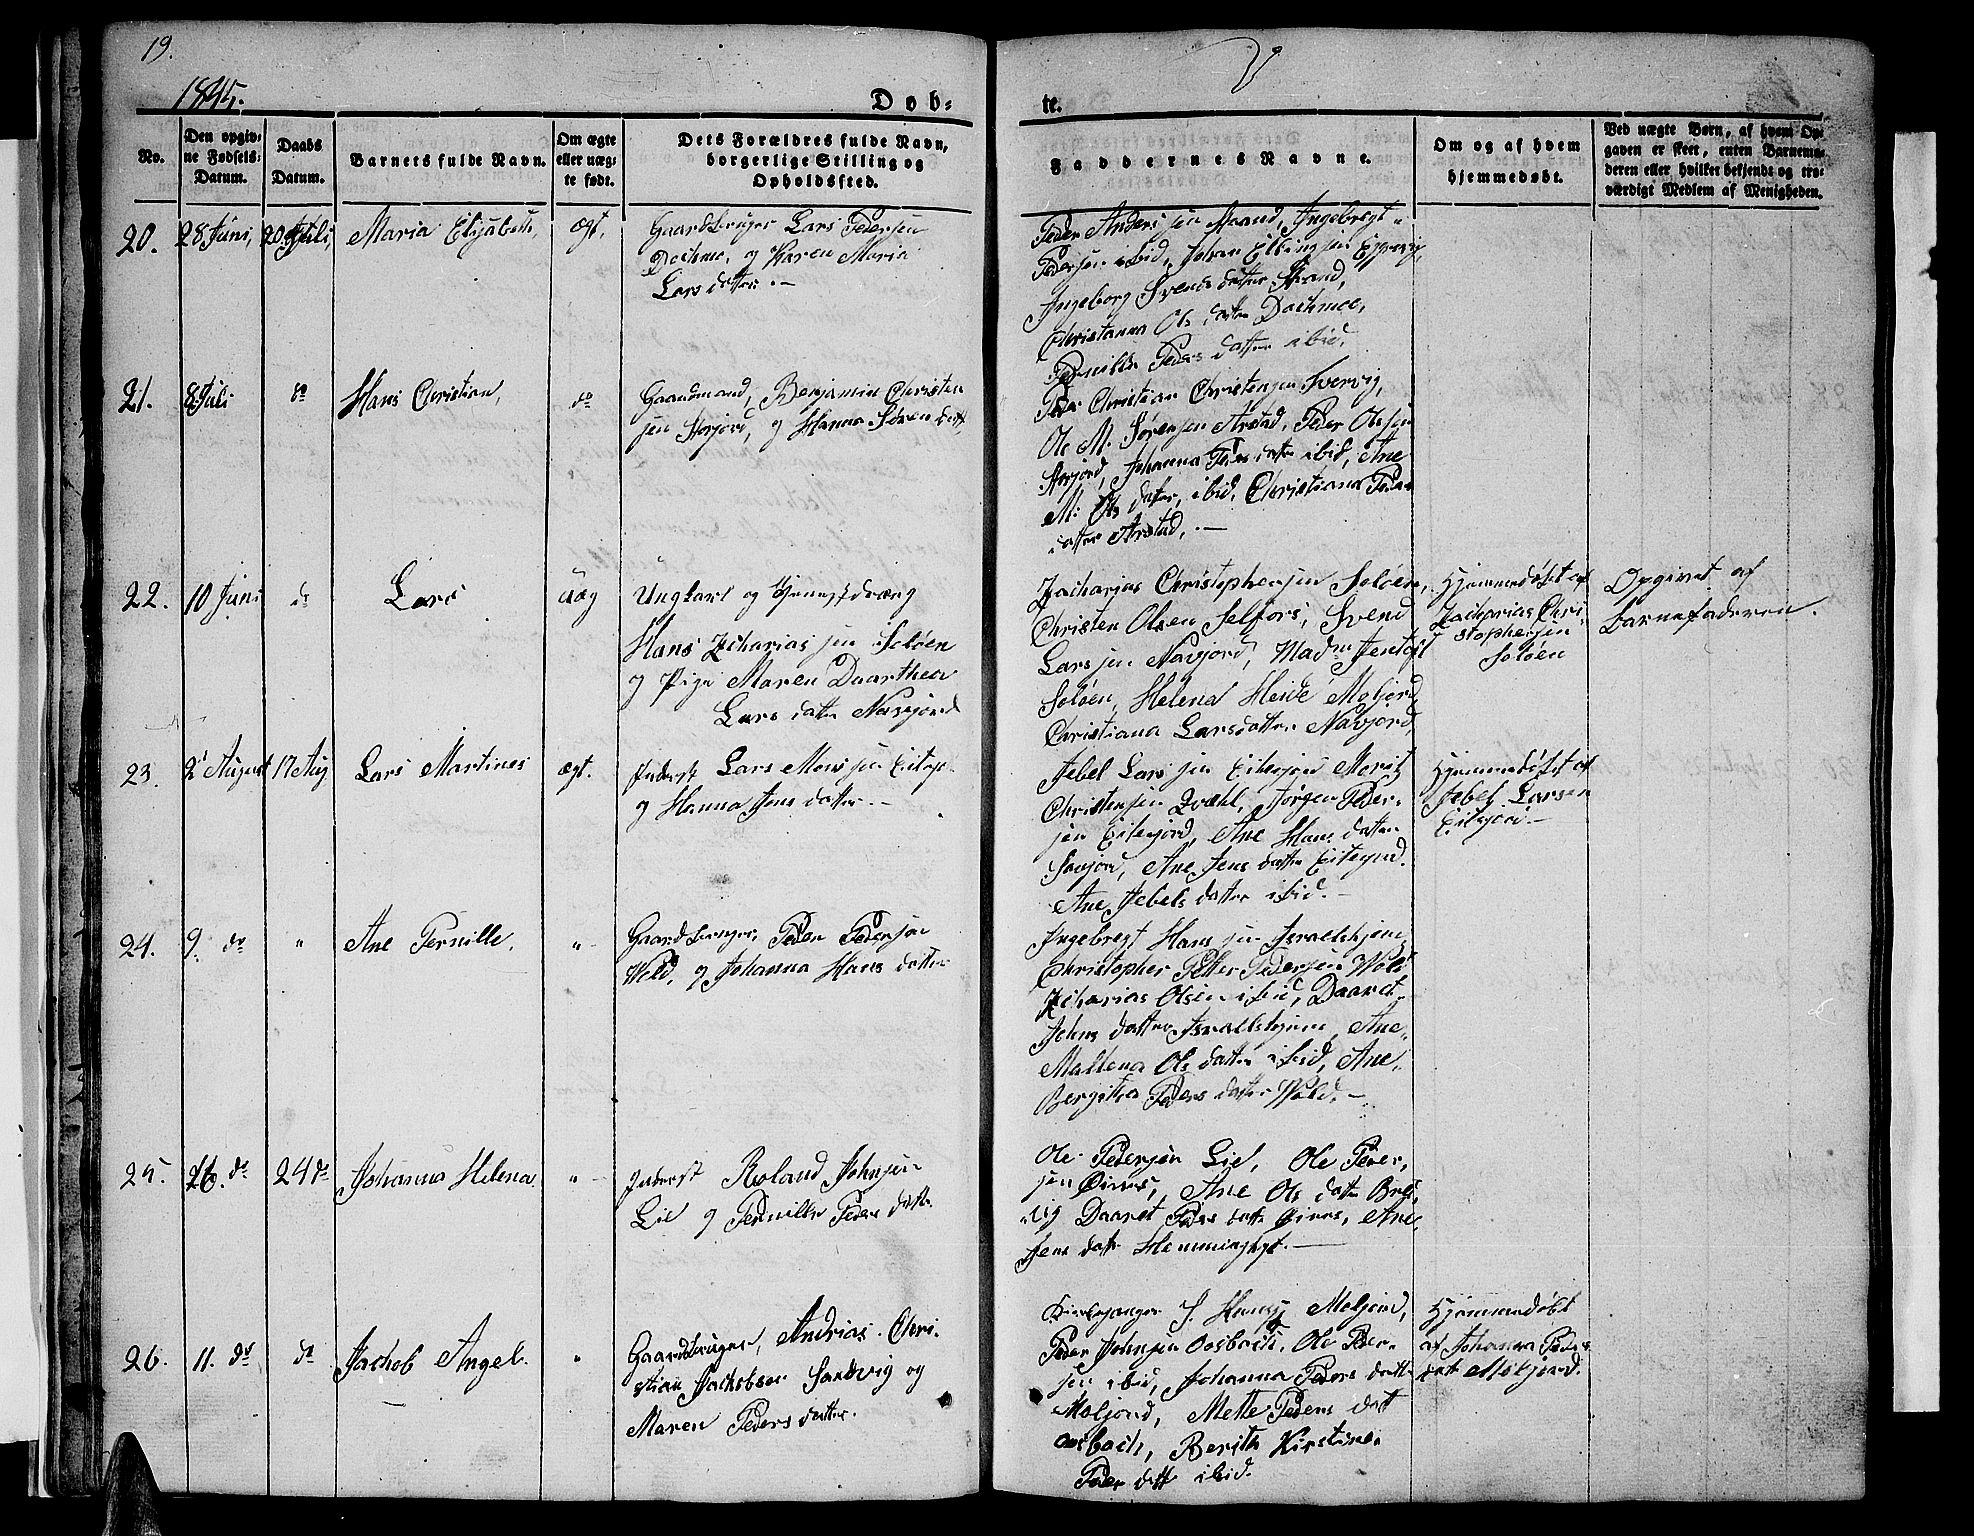 19.
1845.
Døb-
te.
No.
Den opgiv-
ne Fødsels-
Datum.
Daabs
Datum.
Barnets fulde Navn.
Om ægte
eller uæg-
te født.
Dets Forældres fulde Navn,
borgerlige Stilling og
Opholdssted.
Faddernes Navne.
Om og af hvem
hjemmedøbt.
Ved uægte Børn, af hvem Op-
gaven er skeet, enten Barnemo-
deren eller hvilket bekjendt og tro-
værdigt Medlem af Menigheden.
20. 28 Juni, 20 Juli, Maria Elisabeth, ægt,
Gaardbruger Lars Pedersen
og Karen Maria
Larsdatter.-
Peder Andersen Ingebregt
Pedersen ibid, Johan
Ingeborg Svendsdatter Strand,
Christianna Olsdatter
Pernille Pedersdatter ibid.
21. 8 Juli do Hans Christian, do
Gaardmand, Benjamin Christen
sen Storjord, og Hanna Sørensdatt,
Peder Christian Christensen
Ole M. Sørensen Arstad, Peder Olsen
Storjord, Johanna Pedersdatter ibid, Ane
M. Olsdatter, ibid, Christiana Peders
datter Arstad.-
22. 10 Juni do Lars Uæg
Ungkarl og
Hans Zacharias sen Soløen
og Pige Maren Daarthea
Lars datter
Zacharias Christophersen Soløen,
Christen Olsen Selfors, Svend
Lars sen Navjord, Madm Jentoft
Soløen, Helena Heide Moljord,
Christiana Larsdatter Navjord,
Hjemmedøbt af
Zacharias Chri-
stophersen
Soløen
Opgivet af
Barnefaderen.
23. 2 August 17 Aug Lars Martines ægt.
Inderst Lars Mons sen
og Hanna Jens datter.-
Jebel Lars sen Moritz
Christensen Qvæhl, Jørgen Peder-
sen Eitesjord, Ane Hans datter
Ane Jens datter
Ane Jebels datter ibid.-
Hjemmedøbt af
Jebel Larsen
24. 9. do " Ane Pernille. "
Gaardbruger, Peder Pedersen
Wold, og Johanna Hans datter
Ingebregt Hans sen
Christopher Petter Pedersen Wold
Zacharias Olsen ibid, Daaret
Johns datter Ane
Maltena Ols datter ibid, Ane
Bergitha Peders datter Wold.-
25. 26. do 24 do Johanna Helena "
Inderst Roland Johnsen
Lie og Pernille Peders datt.
Ole Pedersen Lie, Ole Peder-
sen Ane Ols datter
Daaret Peders datt Ane
Jens datt
26. 11. do do Jachob Angel. "
Gaardbruger, Andrias Chri-
stian Jachobsen Sandvig og
Maren Peders datter.
Kirkesanger Moljord,
Peder Johnsen Oosbach, Ole Peder-
sen ibid, Johanna Peders datt
Moljord, Mette Peders datt
Oosbach, Berith Kirstine
Peder datt ibid.
Hjemmedøbt
af Johanna Peders
datt Moljord.